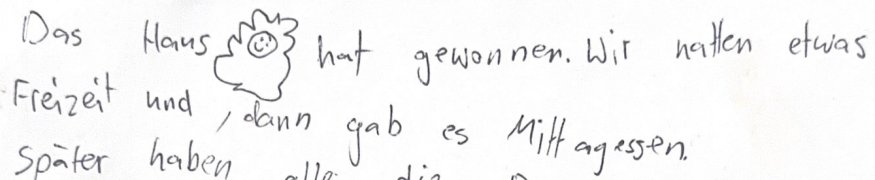 Das Haus hat gewonnen. Wir hatten etwas
Freizeit und , dann gab es Mittagessen.
Später haben alle die